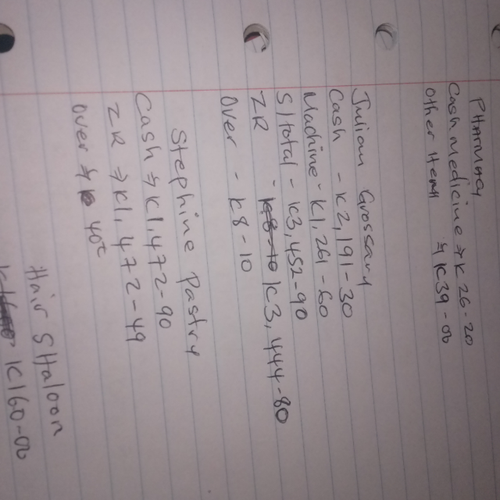 PHARMACY
Cash Medicine => K 26-20
Other Item => K39-00
Julian Grossary
Cash - K2,191-30
Machine - K1,261-60
S/total - K3,452-90
ZR - K8-10 K3,444-80
Over - K8-10
Stephine Pastry
Cash => K1,472-90
ZR => K1,472-49
Over => K 40t
Hair SHaloon
K160-00